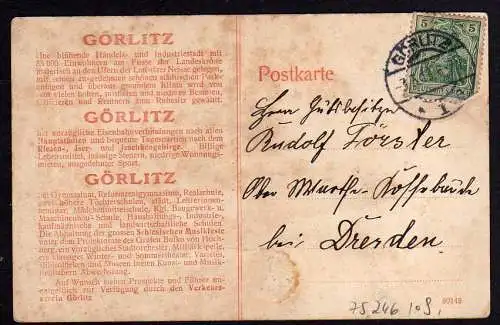 GÖRLITZ
Eine blühende Handels- und Industriestadt mit
85000 Einwohnern am Fusse der Landeskrone
malerisch an den Ufern der Lausitzer Neisse gelegen,
mit seinen ausgedehnten schönen städtischen Park-
anlagen und überaus gesundem Klima wird von
Offizieren und Rentnern zum Ruhesitz gewählt.
GÖRLITZ
hat vorzügliche Eisenbahnverbindungen nach allen
Hauptstädten und bequeme Tagespartien nach dem
Riesen-, Iser- und Jeschkengebirge. Billige
Lebensmittel, niedrige Steuern, niedrige Wohnungs-
mieten, ausgedehnter Sport.
GÖRLITZ
hat Gymnasium, Reformrealgymnasium, Realschule,
zwei höhere Töchterschulen, städt. Lehrerinnen-
seminar, Mädchenmittelschule, Kgl. Baugewerk- u.
Maschinenbau-Schule, Haushaltungs-, Industrie-,
kaufmännische und landwirtschaftliche Schulen.
Die Abhaltung der grossen Schlesischen Musikfeste
unter dem Protektorate des Grafen Bolko von Hoch-
berg, ein vorzügliches Stadtorchester, Militärkapellen,
ein Winter- und Sommertheater, Varietés,
Abwechselung.
Auf Wunsch stehen Prospekte und Führer
zur Verfügung durch den Verkehrs-
verein Görlitz
Postkarte
5
5
GÖRLITZ
1
Herrn Gutsbesitzer
Rudolf Förster
Ober Wartha-Cossebaude
bei Dresden.
80149
75246 109,